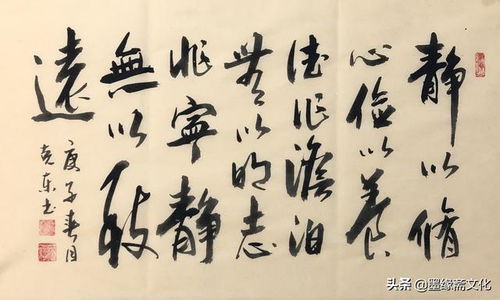 靜以脩
心儉以養
德非澹泊
無以明志
非寧靜
無以致
遠
庚子春月
克东书
头条 @墨缘斋文化